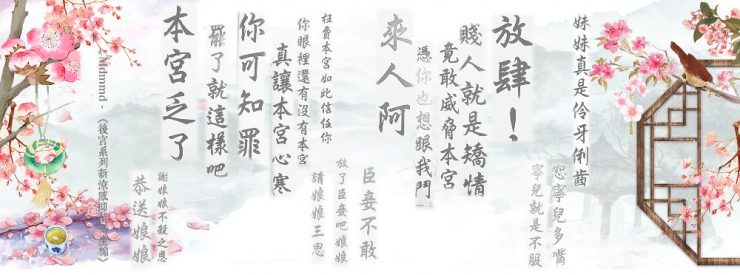 妹妹真是伶牙俐齒
恕寧兒多嘴
寧兒就是不服
放肆！
賤人就是矯情
竟敢威脅本宮
憑你也想跟我鬥
來人阿
臣妾不敢
放了臣妾吧娘娘
請娘娘三思
枉費本宮如此信任你
你眼裡還有沒有本宮
真讓本宮心寒
你可知罪
罷了就這樣吧
本宮乏了
謝娘娘不殺之恩
恭送娘娘
Mdmmd.《後宮系列新涼感